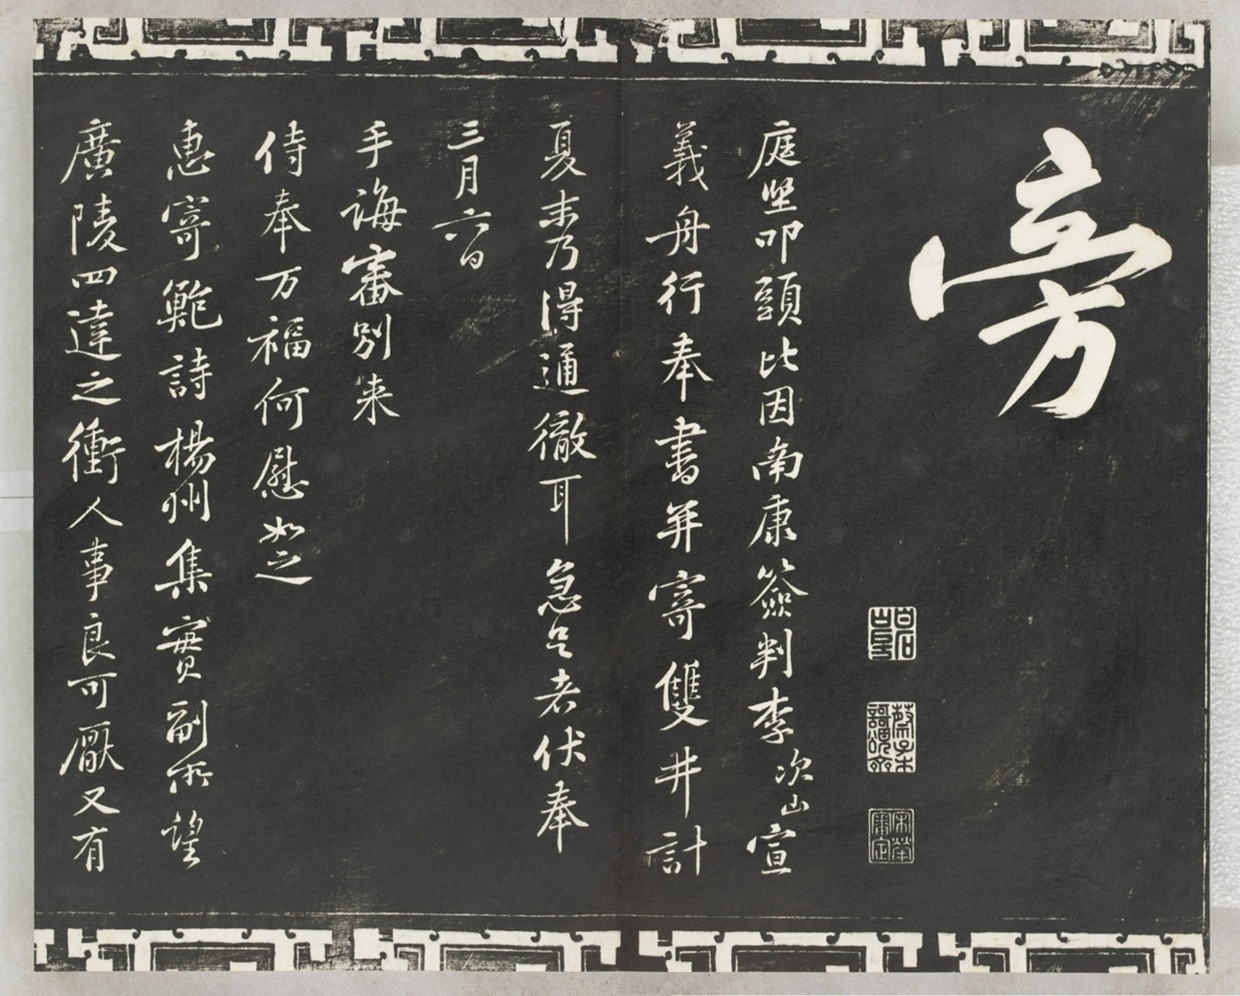 旁
庭堅叩頭比因南康簽判李次山宣
義舟行奉書并寄雙井計
夏末乃得通徹耳急足者伏奉
三月六日
手誨審別来
侍奉万福何慰如之
惠寄鮑詩楊州集實副所望
廣陵四達之衝人事良可厭又有